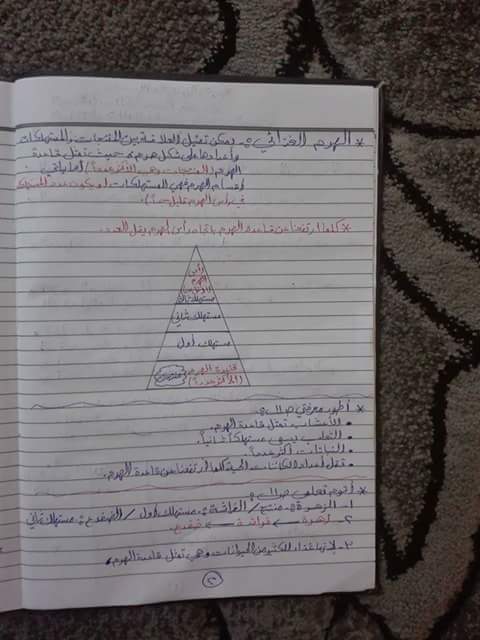 * الهرم الغذائي: يمكن تمثيل العلاقة بين المنتجات والمستهلكات
وأعدادها على شكل هرم، حيث تمثل قاعدة
الهرم المنتجات وهي الأكثر عدداً، أما باقي
أقسام الهرم فهي المستهلكات و يكون عدد المستهلك
في رأس الهرم قليل جداً.
* كلما ارتفعنا عن قاعدة الهرم باتجاه رأس الهرم يقل العدد.
رأس
الهرم
الأقل
مستهلك ثالث
مستهلك ثاني
مستهلك أول
قاعدة الهرم
(الأكثر عدداً)
منتجات
* أطور معرفتي صـ
• الأعشاب تمثل قاعدة الهرم.
• الثعلب يسمى مستهلكاً ثانياً.
• النباتات أكثر عدداً.
• تقل أعداد الكائنات الحية كلما ارتفعنا عن قاعدة الهرم.
* أقوم تعلمي صـ
١- الزهرة: منتج / الفراشة: مستهلك أول / الضفدع: مستهلك ثاني
٢- زهرة ← فراشة ← ضفدع.
٣- لأنها غذاء للكثير من الحيوانات وهي تمثل قاعدة الهرم.